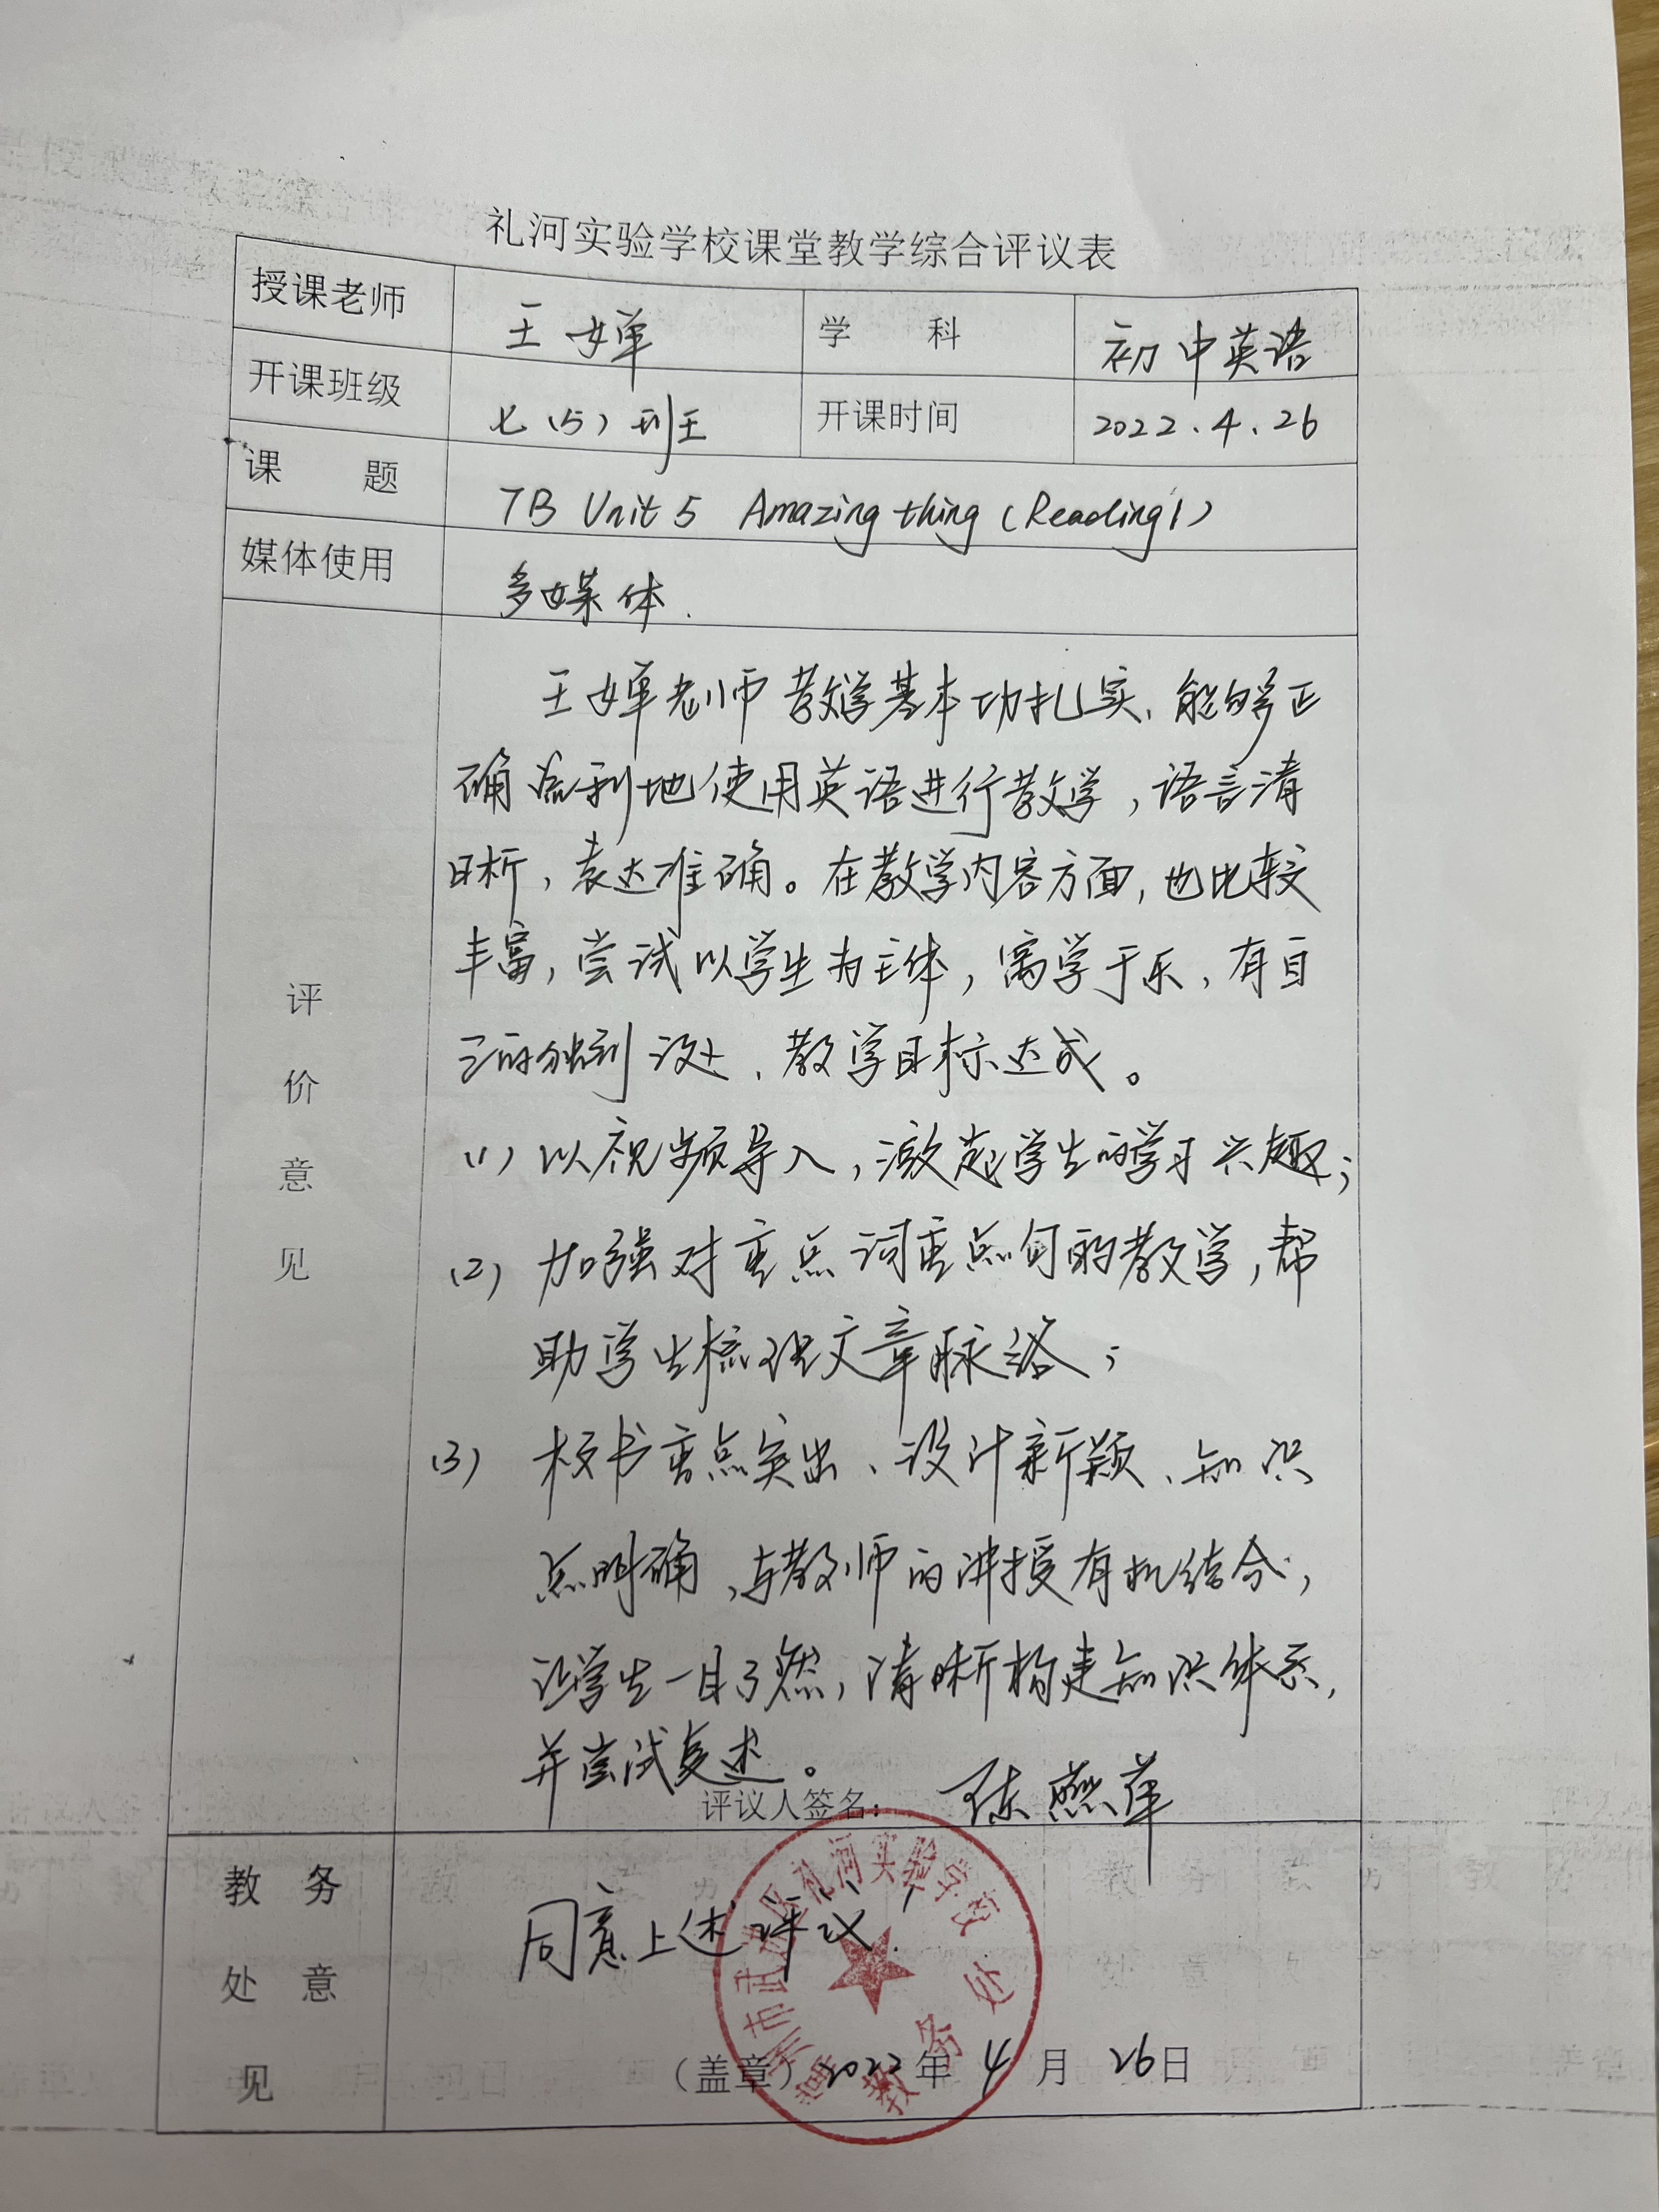 礼河实验学校课堂教学综合评议表
授课老师 王婵 学 科 初中英语
开课班级 七(5)班 开课时间 2022.4.26
课 题 7B Unit 5 Amazing thing (Reading 1)
媒体使用 多媒体.
评价意见
王婵老师教学基本功扎实、能够正
确流利地使用英语进行教学，语言清
晰，表达准确。在教学内容方面，也比较
丰富，尝试以学生为主体，寓学于乐，有自
己的独到设计、教学目标达成。
(1) 以视频导入，激起学生的学习兴趣；
(2) 加强对重点词重点句的教学，帮
助学生梳理文章脉络；
(3) 板书重点突出、设计新颖、知识
点明确、与教师的讲授有机结合，
让学生一目了然，清晰构建知识体系，
并尝试复述。
评议人签名： 陈燕萍
教务处意见
同意上述评议.
常州市武进区礼河实验学校
教务处
（盖章）2022年 4 月 26日